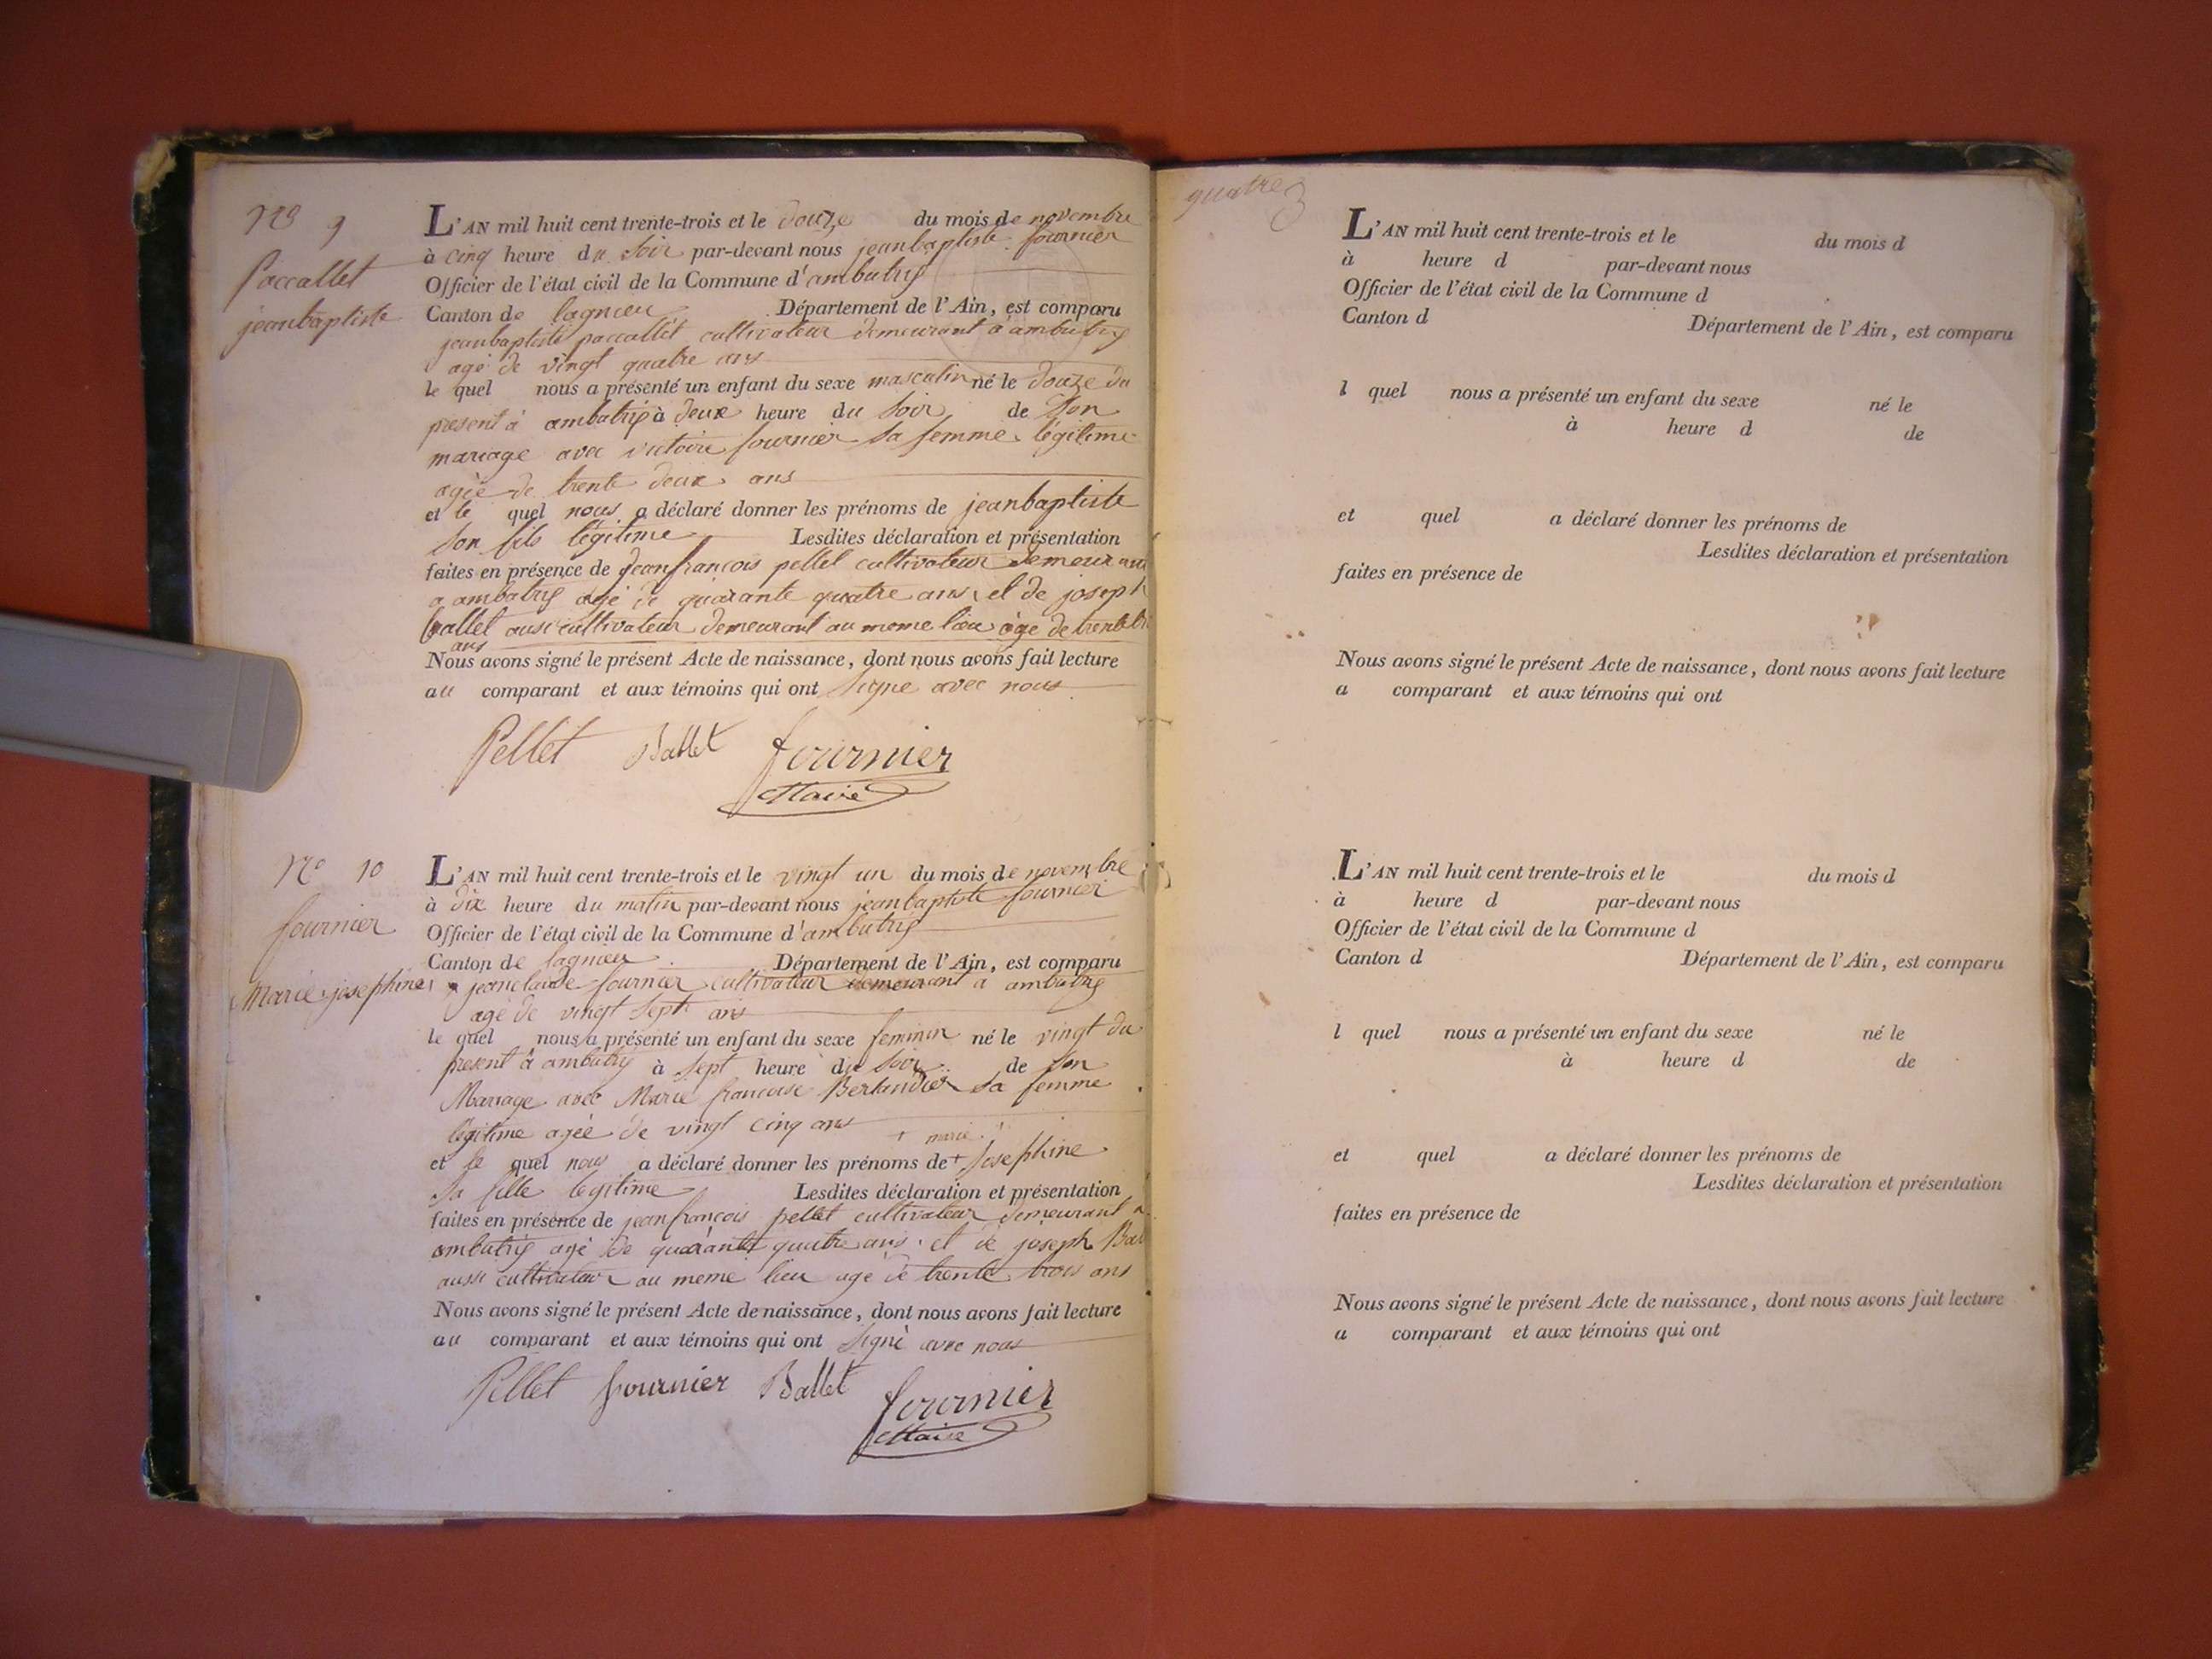 N° 9
Paccallet
jeanbaptiste
L'AN mil huit cent trente-trois et le douze du mois de novembre
à cinq heure du soir par-devant nous jeanbaptiste fournier
Officier de l'état civil de la Commune d'ambutrix
Canton de lagnieu Département de l'Ain, est comparu
jeanbaptiste paccallet cultivateur demeurant a ambutrix
agé de vingt quatre ans
le quel nous a présenté un enfant du sexe masculin né le douze du
present à ambutrix à deux heure du soir de son
mariage avec victoire fournier sa femme légitime
agée de trente deux ans
et le quel nous a déclaré donner les prénoms de jeanbaptiste
son fils légitime Lesdites déclaration et présentation
faites en présence de jeanfrançois pellet cultivateur demeurant
a ambutrix agé de quarante quatre ans, et de joseph
ballet aussi cultivateur demeurant au meme lieu agé de trente
ans
Nous avons signé le présent Acte de naissance, dont nous avons fait lecture
au comparant et aux témoins qui ont signé avec nous
Pellet Ballet fournier
Maire
N° 10
fournier
Marie josephine
L'AN mil huit cent trente-trois et le vingt un du mois de novembre
à dix heure du matin par-devant nous jeanbaptiste fournier
Officier de l'état civil de la Commune d'ambutrix
Canton de lagnieu Département de l'Ain, est comparu
jeanclaude fournier cultivateur demeurant a ambutrix
agé de vingt sept ans
le quel nous a présenté un enfant du sexe feminin né le vingt du
present à ambutrix à sept heure du soir de son
Mariage avec Marie francoise Berlandier sa femme
légitime agée de vingt cinq ans
+ marie
et le quel nous a déclaré donner les prénoms de + Josephine
sa fille legitime Lesdites déclaration et présentation
faites en présence de jeanfrançois pellet cultivateur demeurant a
ambutrix agé de quarante quatre ans. et de joseph Bal
aussi cultivateur au meme lieu agé de trente trois ans
Nous avons signé le présent Acte de naissance, dont nous avons fait lecture
au comparant et aux témoins qui ont signé avec nous
Pellet fournier Ballet fournier
Maire
quatre
L'AN mil huit cent trente-trois et le du mois d
à heure d par-devant nous
Officier de l'état civil de la Commune d
Canton d Département de l'Ain, est comparu
l quel nous a présenté un enfant du sexe né le
à heure d de
et quel a déclaré donner les prénoms de
Lesdites déclaration et présentation
faites en présence de
Nous avons signé le présent Acte de naissance, dont nous avons fait lecture
a comparant et aux témoins qui ont
L'AN mil huit cent trente-trois et le du mois d
à heure d par-devant nous
Officier de l'état civil de la Commune d
Canton d Département de l'Ain, est comparu
l quel nous a présenté un enfant du sexe né le
à heure d de
et quel a déclaré donner les prénoms de
Lesdites déclaration et présentation
faites en présence de
Nous avons signé le présent Acte de naissance, dont nous avons fait lecture
a comparant et aux témoins qui ont